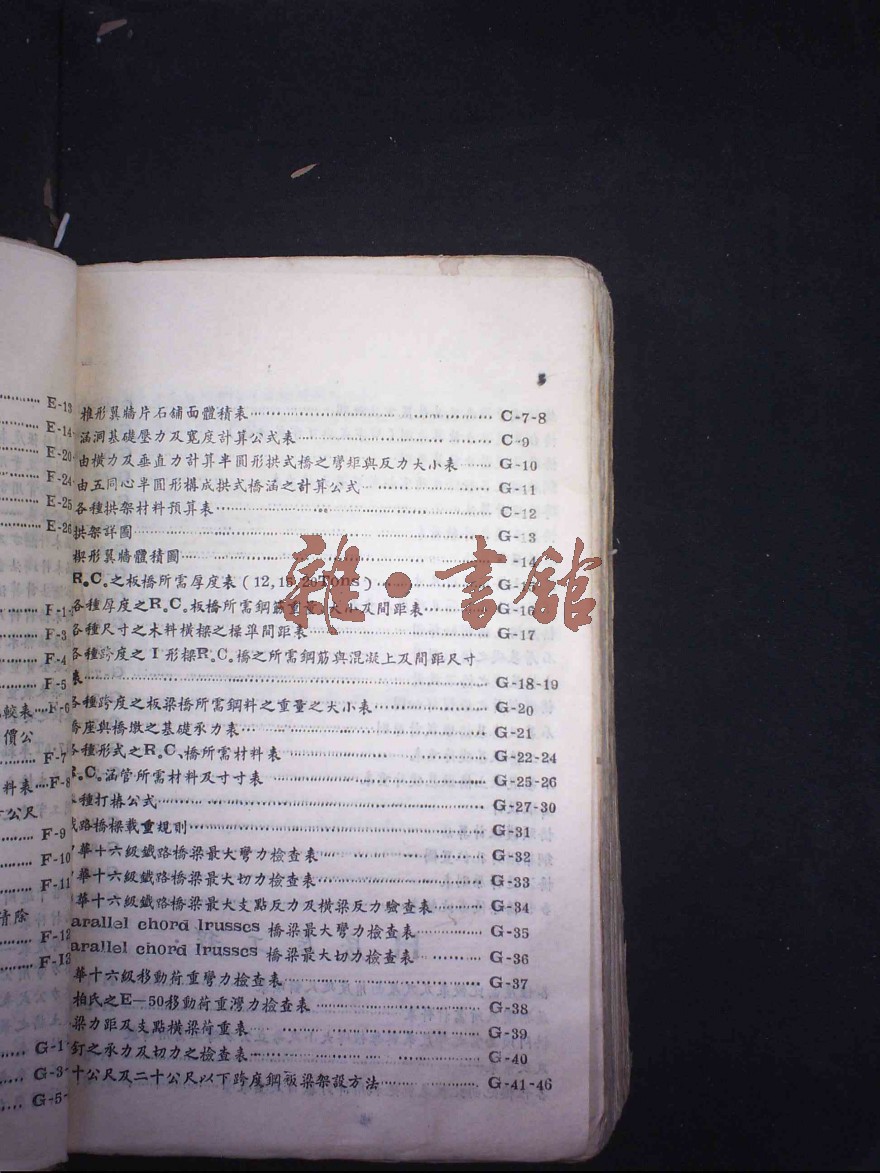 E-13
E-14
E-20
F-24
E-25
E-26
F-1
F-3
F-4
F-5
較表 F-6
價公
F-7
料表 F-8
公尺
F-9
F-10
F-11
清除
F-12
F-13
G-1
G-3
G-5
5
椎形翼牆片石舖面體積表 C-7-8
涵洞基礎壓力及寬度計算公式表 C-9
由橫力及垂直力計算半圓形拱式橋之彎矩與反力大小表 G-10
由五同心半圓形構成拱式橋涵之計算公式 G-11
各種拱架材料預算表 C-12
拱架詳圖 G-13
楔形翼牆體積圖 -14
R.C.之板橋所需厚度表(12,15,20Tons)
各種厚度之R.C.板橋所需鋼筋重量大小及間距表 G-16
各種尺寸之木料橫樑之標準間距表 G-17
各種跨度之I形樑R.C.橋之所需鋼筋與混凝土及間距尺寸
表 G-18-19
各種跨度之板梁橋所需鋼料之重量之大小表 G-20
橋座與橋墩之基礎承力表 G-21
各種形式之R.C.橋所需材料表 G-22-24
R.C.涵管所需材料及寸寸表 G-25-26
各種打樁公式 G-27-30
路橋樑載重規則 G-31
華十六級鐵路橋梁最大彎力檢查表 G-32
華十六級鐵路橋梁最大切力檢查表 G-33
華十六級鐵路橋梁最大支點反力及橫梁反力驗查表 G-34
arallel chord lrusses 橋梁最大彎力檢查表 G-35
arallel chord lrusses 橋梁最大切力檢查表 G-36
華十六級移動荷重彎力檢查表 G-37
柏氏之E-50移動荷重灣力檢查表 G-38
梁力距及支點橫梁荷重表 G-39
釘之承力及切力之檢查表 G-40
十公尺及二十公尺以下跨度鋼板梁架設方法 G-41-46
雜·書館